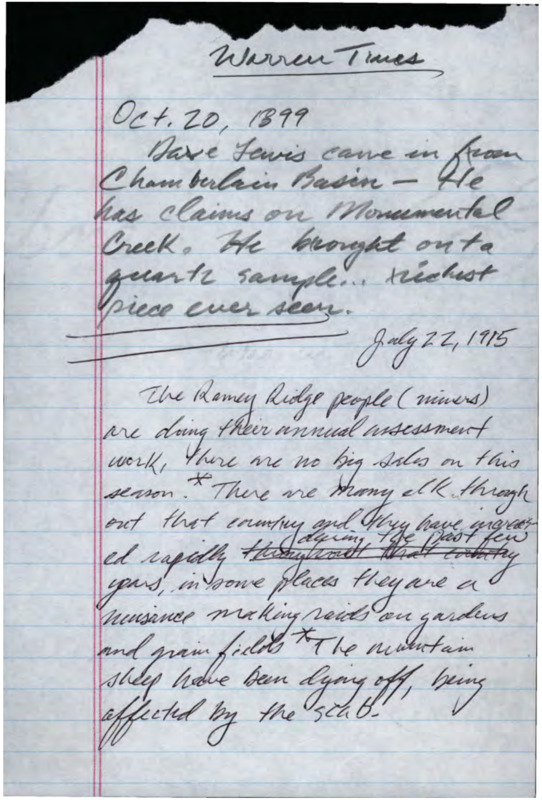 Warren Times
Oct. 20, 1899
Dave Lewis came in from
Chamberlain Basin — He
has claims on Monumental
Creek. He brought out a
quartz sample... richest
piece ever seen.
July 22, 1915
The Ramey Ridge people (miners)
are doing their annual assessment
work, there are no big sales on this
season.* There are many elk through
out that country and they have increas
during the past few
ed rapidly throughout that country
years, in some places they are a
nuisance making raids on gardens
and grain fields * The mountain
sheep have been dying off, being
affected by the scab.